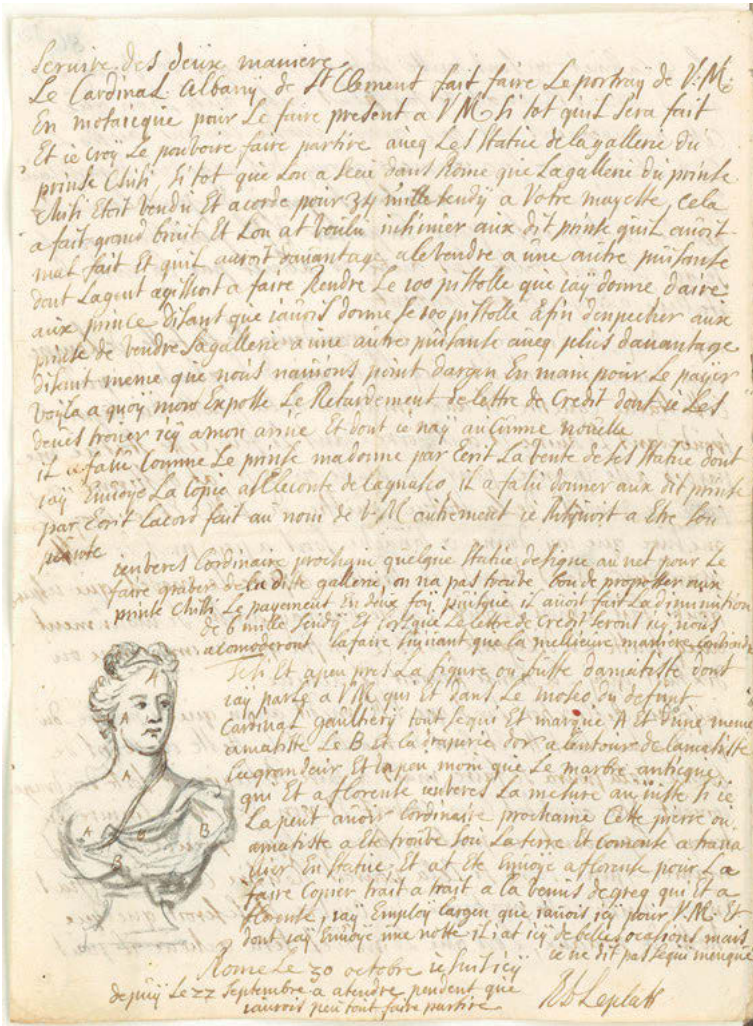 servire des deux maniere
Le Cardinal Albany de St Clement fait faire Le portray de V.M.
En mosaicque pour Le faire present a VM si tot quil sera fait
Et ie croy Le pouvoire faire partire aveq Les statue de la gallerie du
prinse Chisi, si tot que Lon a sceu dans Rome que La gallerie du prinse
Chisi Etoit vendu Et acorde pour 34 mille scudy a Votre mayeste, cela
a fait grand bruit Et Lon at voulu intimier aux dit prinse quil avoit
mal fait Et quil auroit davantage a le vendre a une autre puisante
dont Lagent agissoit a faire Rendre Le 100 pistolle que iay donne daire
aux prince disant que iavois donne se 100 pistolle afin denpecher aux
prinse de vendre sa gallerie a une autre puisante aveq plus davantage
disant meme que nous navions point dargen En main pour Le payer
voyla a quoy mon Expose Le Retardement de lettre de Credit dont ie Les
devois trouver icy a mon arive Et dont ie nay aucunne nouvelle
il a falu comme Le prinse ma donne par Ecrit La vente de ses statue dont
iay Envoye La copie a Leconte de Lagnasco il a falu donner aux dit prinse
par Ecrit Lacord fait au nom de V.M. autrement ie Risquoit a Etre son
ienveres Lordinaire prochain quelque statue designe au net pour Le
faire graver de la dite gallerie, on na pas trouve bon de proposser aux
prinse Chisi Le payement En deux foy puisque il avoit fait La diminution
de 6 mille scudy Et Lorsque Le lettre de Credit seront icy nous
acomoderont lafaire suivant que la mellieure maniere
Et a peu pres La figure ou buste damatiste dont
iay parle a VM qui Et dans Le museo du defunt
Cardinal gaultiery tout sequi Et marque A Et dune meme
amatiste Le B Et la draperie dor a lentour de lamatiste
La grandeur Et la peu moin que Le marbre anticque
qui Et a florense ienveres La mesure au juste si ie
La peut avoir lordinaire prochaine Cette pierre ou
amatiste a Ete trouve sou La terre Et comense a trava
llier En statue, Et at Ete Envoye a florense pour La
faire Copier trait a trait a la venus de greq qui Et a
florense, iay Employ largen que iavois icy pour V.M. Et
dont iay Envoye une notte il i at icy de belles ocasions mais
ie ne dit pas sequi menque
Rome Le 30 octobre ie suis icy
depuy Le 22 septembre a atendre pendent que
iaurois peu tout faire partire
Leplatt
A
A
A
A
A
B
B
B